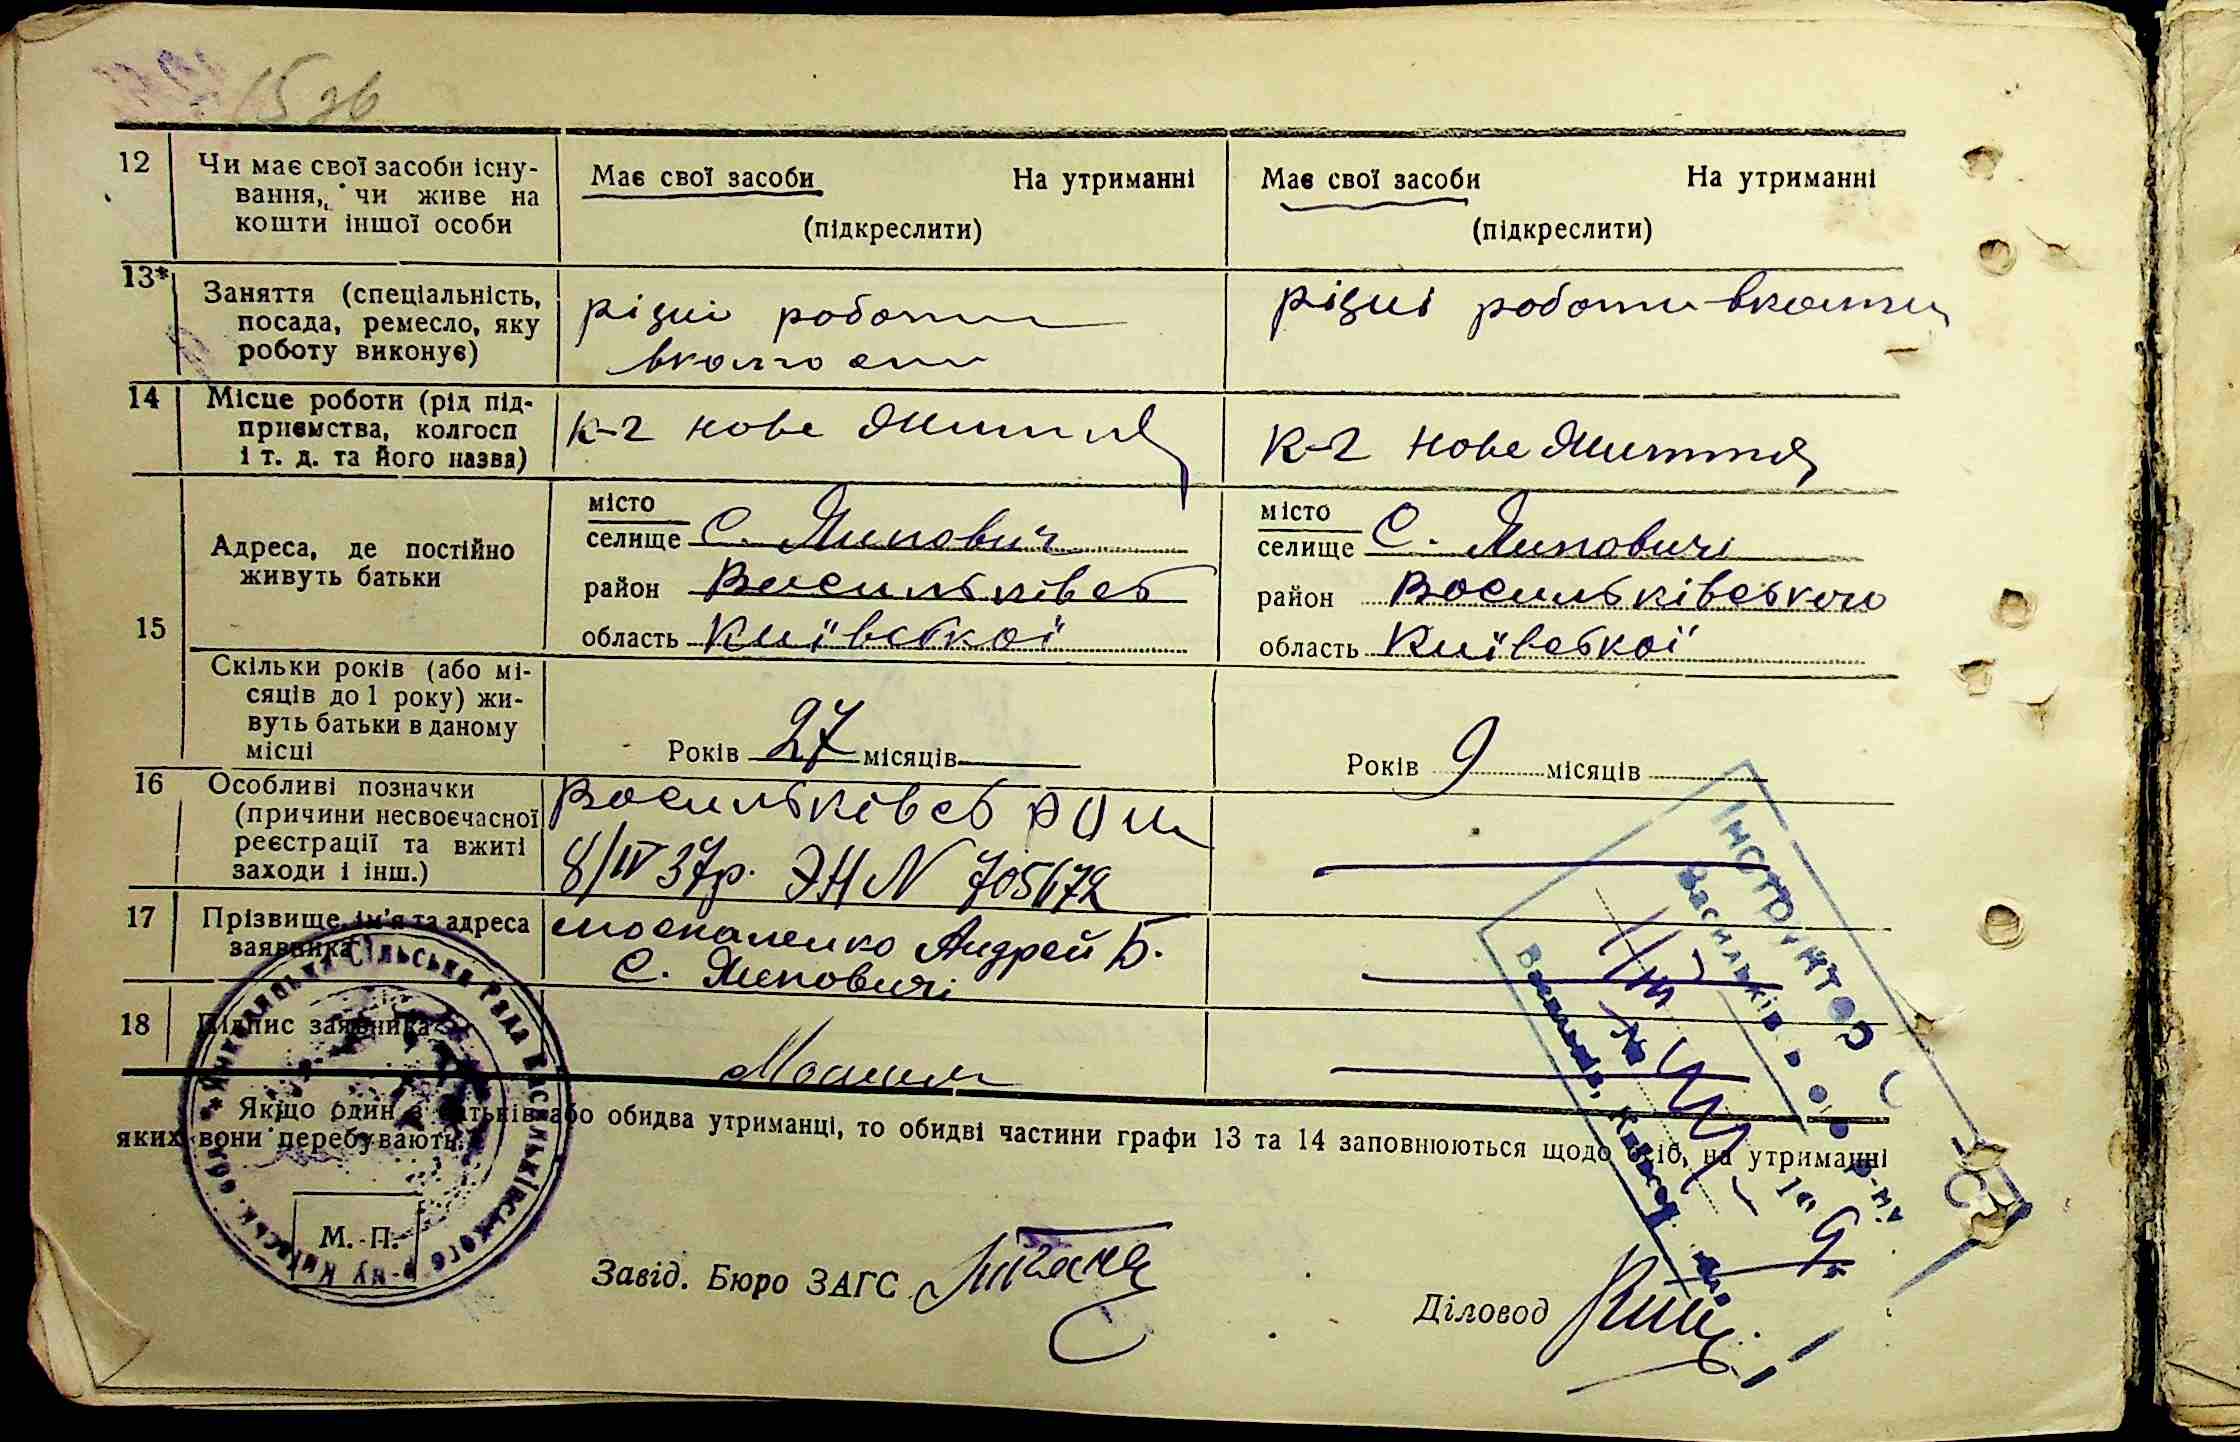 15 зв
12 Чи має свої засоби існу-
вання, чи живе на
кошти іншої особи
Має свої засоби На утриманні
(підкреслити)
Має свої засоби На утриманні
(підкреслити)
13* Заняття (спеціальність,
посада, ремесло, яку
роботу виконує)
різні роботи
в колгоспі
різні роботи
14 Місце роботи (рід під-
приємства, колгосп
і т. д. та його назва)
к-г нове життя
к-г нове життя
15
Адреса, де постійно
живуть батьки
місто
селище С. Липович
район Васильківсь
область Київської
місто
селище С. Липовичі
район Васильківського
область Київської
Скільки років (або мі-
сяців до 1 року) жи-
вуть батьки в даному
місці
Років 27 місяців
Років 9 місяців
16 Особливі позначки
(причини несвоєчасної
реєстрації та вжиті
заходи і інш.)
Васильківсь
8/IV 37р. ЭН N 705672
17 Прізвище, ім'я та адреса
заявника
москаленко Андрей Б.
С. Липовичі
18 Підпис заявника
Якщо один з батьків або обидва утриманці, то обидві частини графи 13 та 14 заповнюються щодо осіб, на утриманні
яких вони перебувають.
М. П.
Завід. Бюро ЗАГС
Діловод
Сільська Рада Васильківського р-ну Київськ. обл.
Інструктор
Васильків